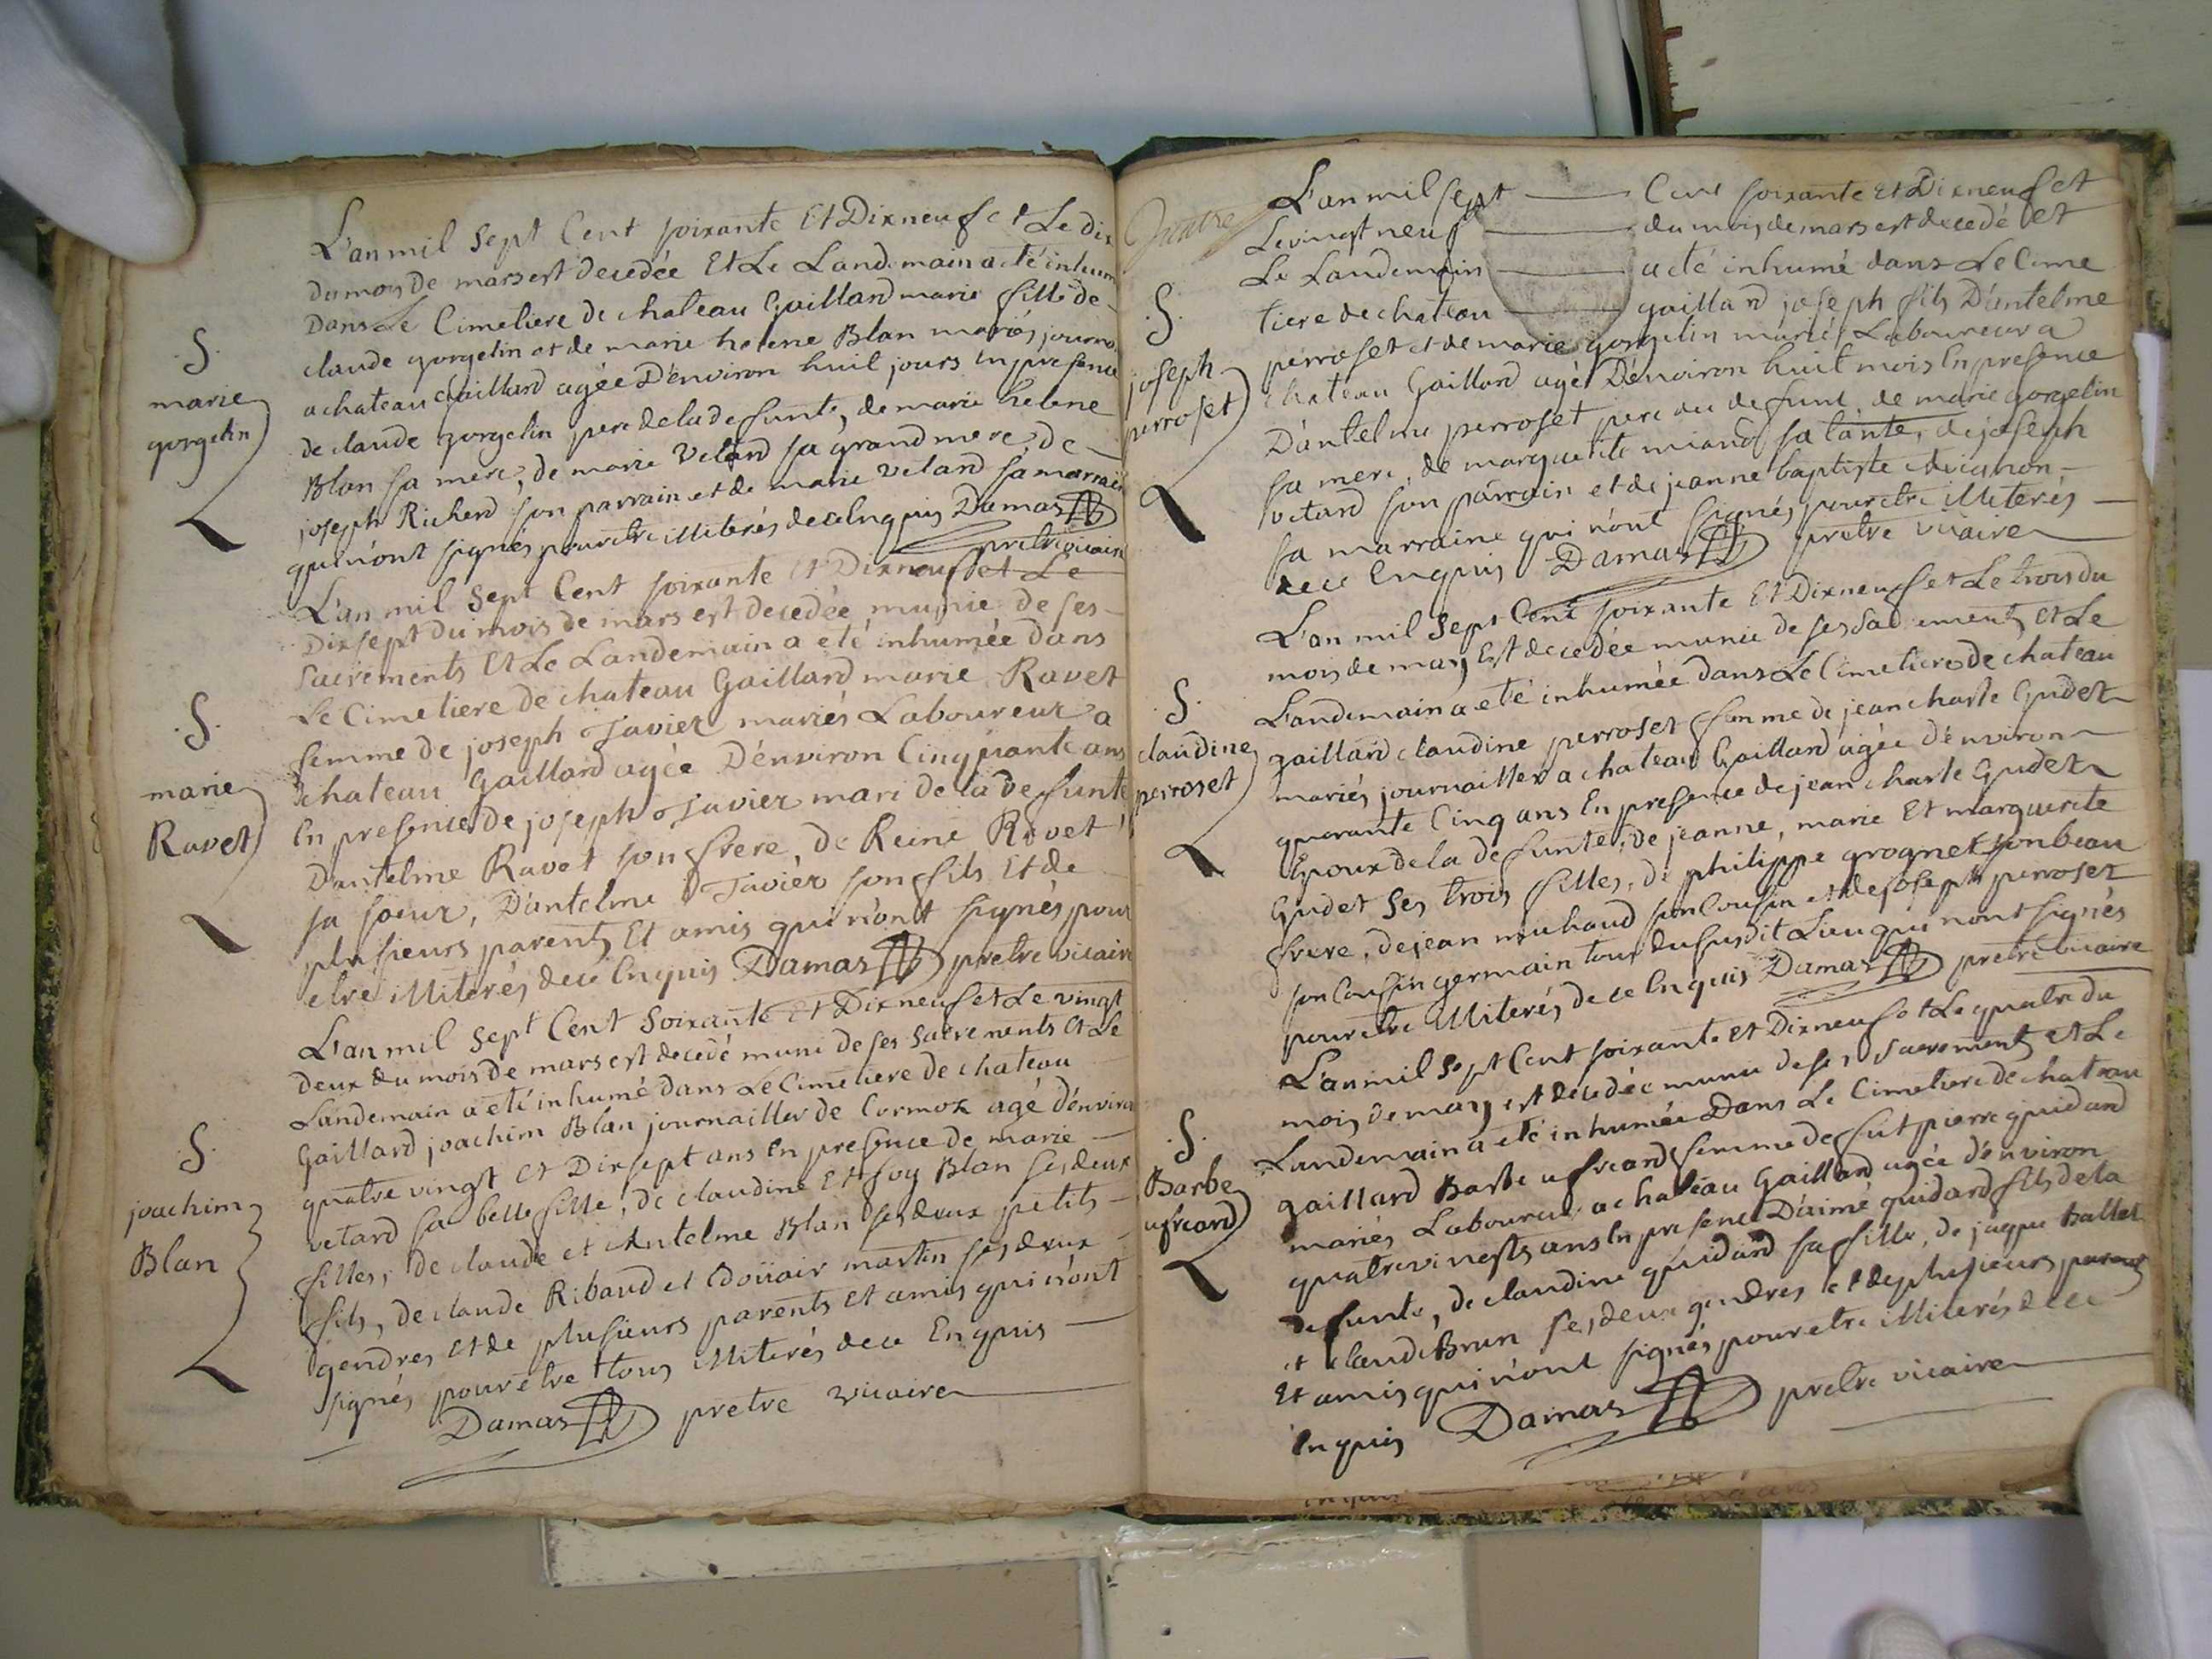 L'an mil sept Cent soixante Et Dixneuf et Le dix
du mois de mars est decedée Et Le Landemain a eté inhum
Dans Le Cimetiere de chateau Gaillard marie fille de
claude gorgelin et de marie helene Blan mariés journa
a chateau Gaillard agée D'environ huit jours En presence
de claude gorgelin pere de la defunte, de marie helene
Blan sa mere, de marie Velard sa grand mere de
joseph Richerd son parrain et de marie velard sa marrain
qui n'ont signés pour etre illiterés de ce Enquis Damas
pretre vicaire
S.
marie
gorgelin
L'an mil sept Cent soixante Et Dixneuf et Le
Dixsept du mois de mars est decedée munie de ses
Sacrements Et Le Landemain a eté inhumée Dans
Le Cimetiere de chateau Gaillard marie Ravet
femme de joseph Javier mariés Laboureur a
chateau Gaillard agée D'environ Cinquante ans
En presence de joseph Javier mari de la Defunte
D'antelme Ravet son frere, de Reine Ravet
sa soeur, D'antelme Javier son fils Et de
plusieurs parents Et amis qui n'ont signés pour
etre illiterés de ce Enquis Damas pretre vicaire
S.
marie
Ravet
L'an mil sept Cent Soixante Et Dixneuf et Le vingt
deux du mois de mars est decedé muni de ses Sacrements Et Le
Landemain a eté inhumé dans Le Cimetiere de chateau
Gaillard joachim Blan journaillier de Cormoz agé d'environ
quatre vingt et Dixsept ans En presence de marie
vetard sa belle fille, de claudine Et foy Blan ses deux
filles, de claude et Antelme Blan ses deux petits
fils, de claude Ribaud et Edoüair martin ses deux
gendres Et de plusieurs parents Et amis qui n'ont
signés pour etre tous illiterés de ce Enquis
Damas pretre vicaire
S.
joachim
Blan
L'an mil sept Cent soixante Et Dixneuf et
Le vingt neuf du mois de mars est decedé et
Le Landemain a eté inhumé dans Le Cime
tiere de chateau gaillard joseph fils D'antelme
perroset et de marie gorgelin mariés Laboureur a
chateau Gaillard agé D'environ huit mois En presence
D'antelme perroset pere du defunt de marie gorgelin
sa mere, de marguerite miand sa tante, de joseph
vetard son parrain et de jeanne baptiste Avignon
sa marraine qui n'ont signés pour etre illiterés
de ce Enquis Damas pretre vicaire
S.
joseph
perroset
L'an mil Sept Cent soixante Et Dixneuf et Le trois du
mois de mars Est decedée munie de ses Sacrements Et Le
Landemain a eté inhumée dans Le Cimetiere de chateau
gaillard claudine perroset femme de jean charle Gudet
mariés journaillier a chateau Gaillard agée d'environ
quarante Cinq ans En presence de jean charle Gudet
Epoux de la defunte, de jeanne, marie Et marguerite
Gudet ses trois filles, de philippe grognet son beau
frere, de jean muhaud son Cousin et de joseph perroset
son Cousin germain tous du susdit Lieu qui n'ont signés
pour etre illiterés de ce Enquis Damas pretre vicaire
S.
claudine
perroset
L'an mil sept Cent soixante et Dixneuf et Le quatre du
mois de mars est decedée munie de ses Sacrements et Le
Landemain a eté inhumée Dans Le Cimetiere de chateau
gaillard Barbe ufreard femme de fut pierre guidard
mariés Laboureur a chateau Gaillard agée d'environ
quatrevingts ans En presence D'aimé guidard fils de la
defunte, de claudine guidard sa fille, de jaque ballet
et claude Brun ses deux gendres et de plusieurs parents
Et amis qui n'ont signés pour etre illiterés de ce
Enquis Damas pretre vicaire
S.
Barbe
ufreard